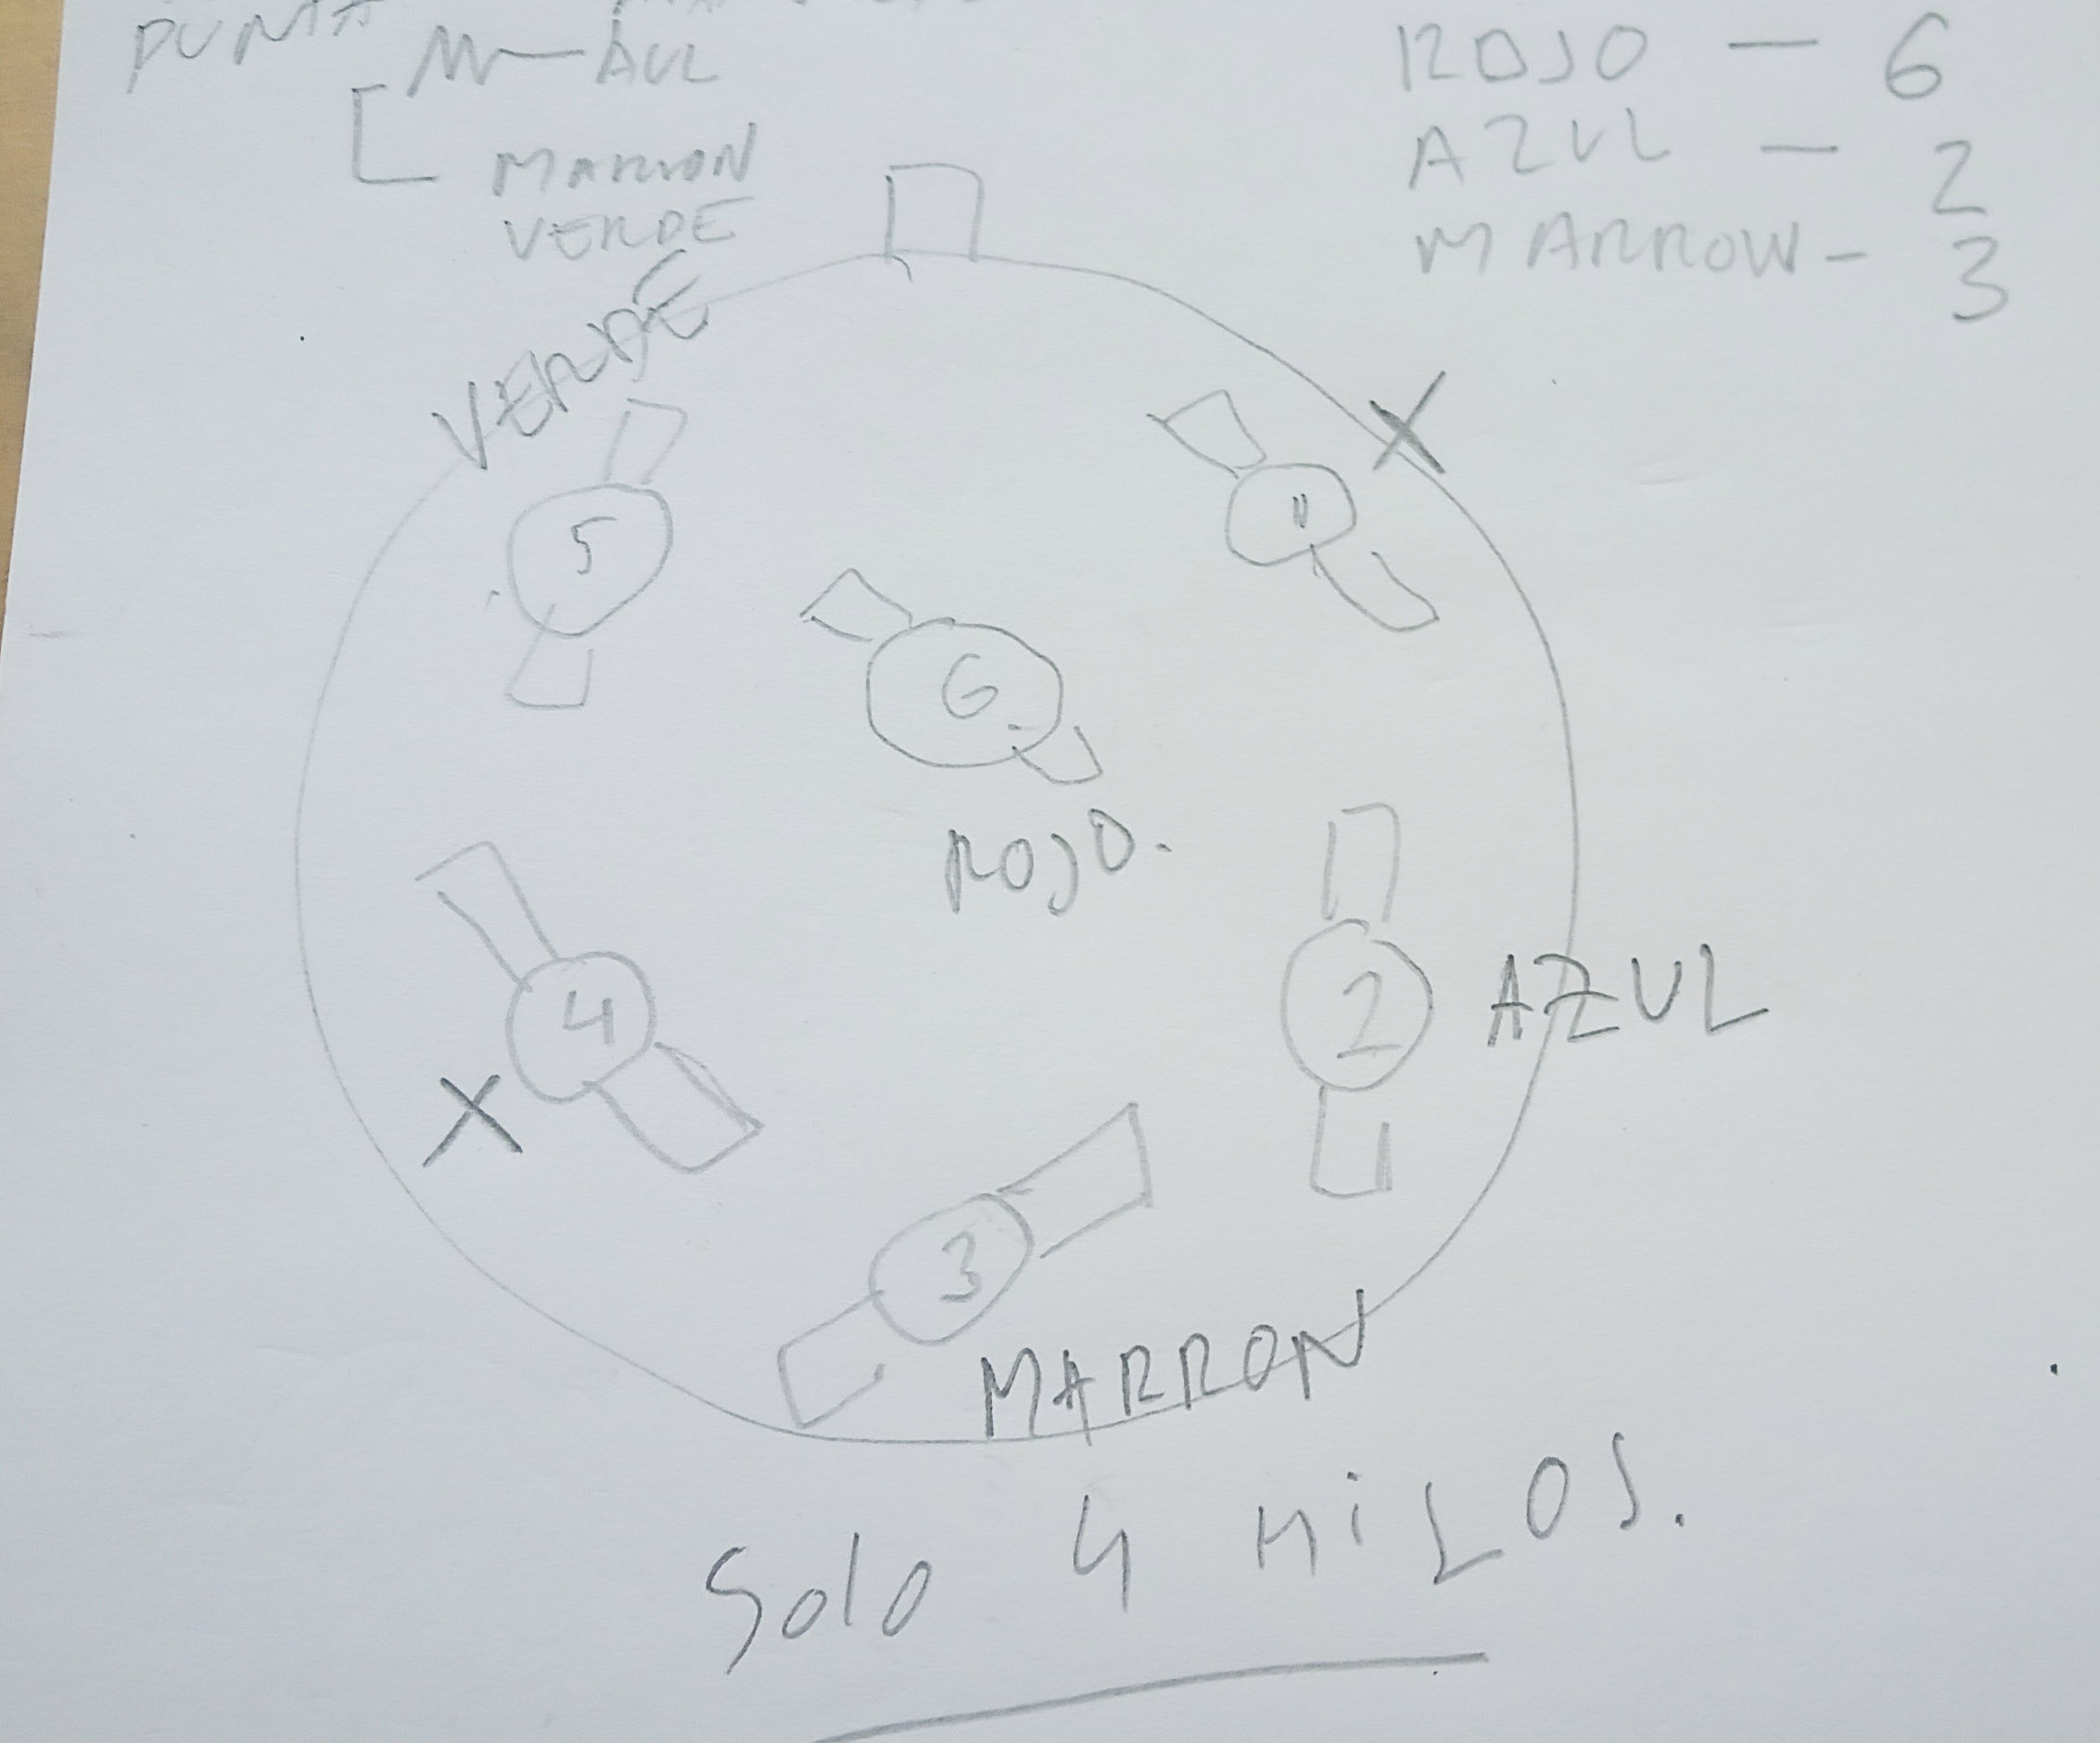 PUNTA
M — AUL
MARRON
VERDE
ROJO — 6
AZUL — 2
MARROW - 3
VERDE
X
5
11
6
ROJO.
4
2
AZUL
X
3
MARRON
Solo 4 HiLOS.